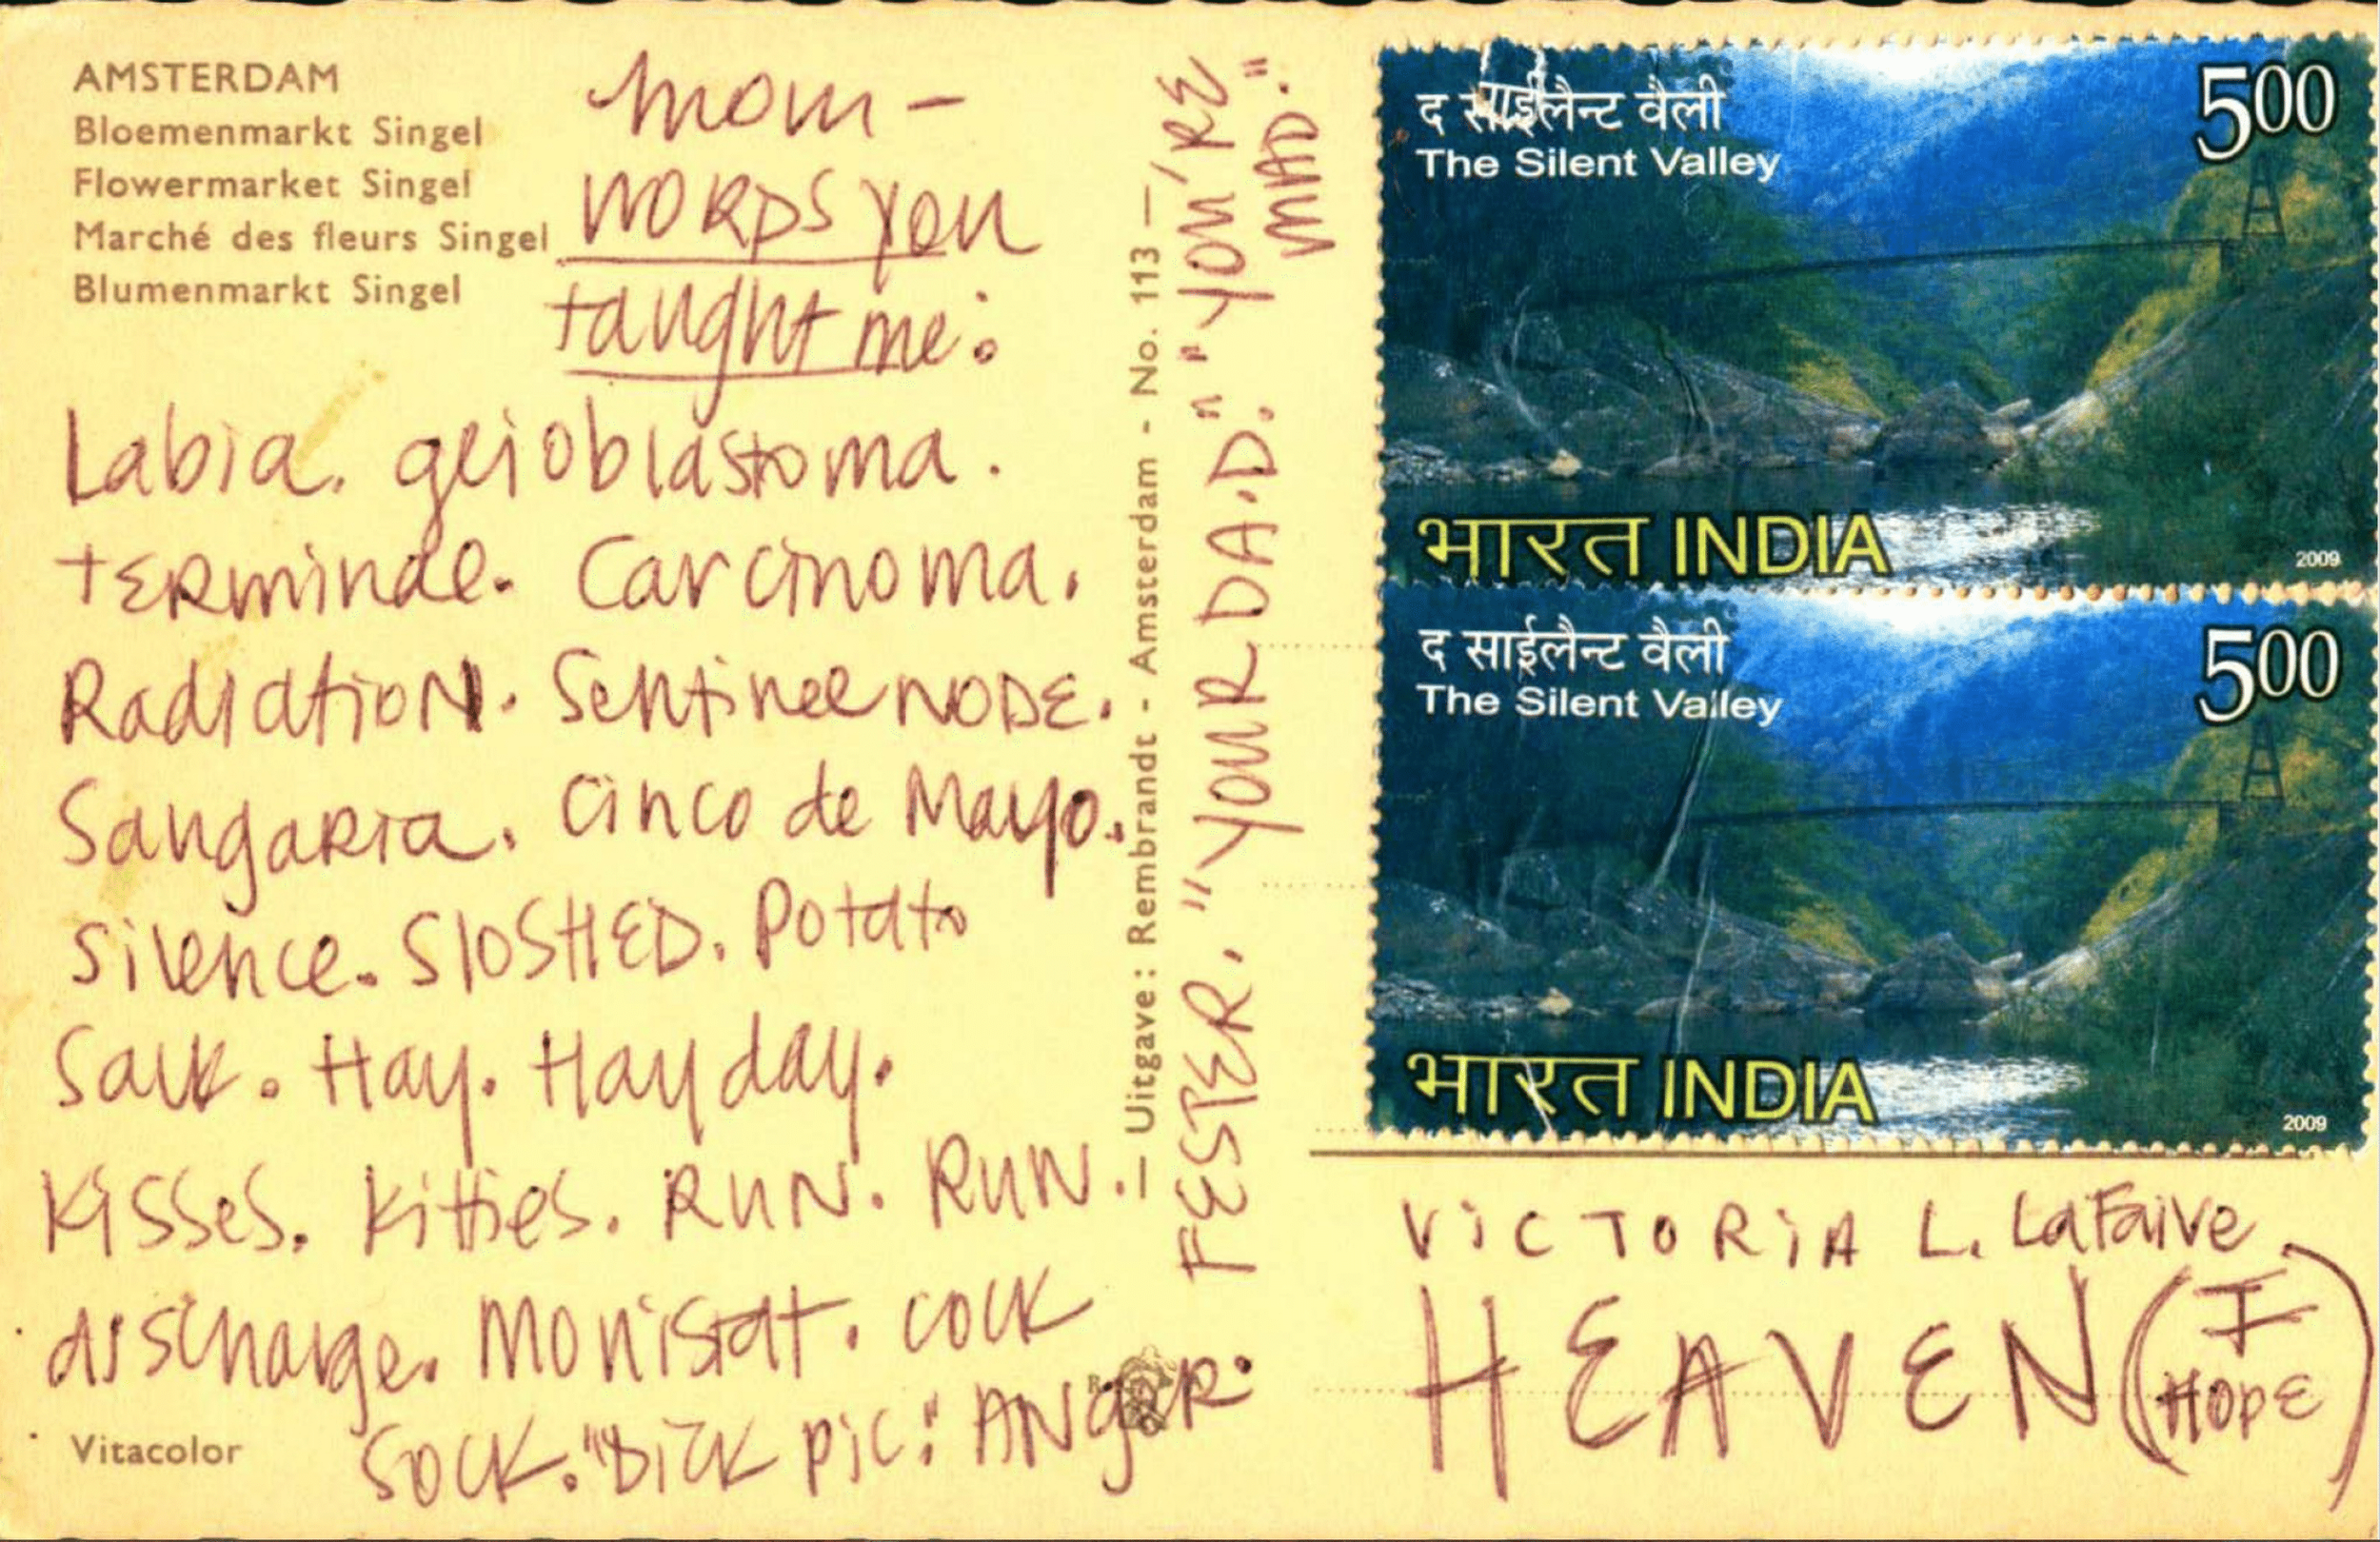 AMSTERDAM
Bloemenmarkt Singel
Flowermarket Singel
Marché des fleurs Singel
Blumenmarkt Singel
Mom -
WORDS You
taught me:
Labia. glioblastoma.
tERminal. Carcinoma.
RadiatioN. Sentinel NODE.
SangaRia. Cinco de Mayo.
Silence. SlOSHED. Potato
Salk. Hay. Hayday.
Kisses. Kitties. RUN. RUN.
discharge. Monistat. cock
Sock. "DICK pic." ANgeR.
FESTER. "YOUR DA.D." "YOU'RE
MAD."
— Uitgave : Rembrandt - Amsterdam - No. 113 —
Vitacolor
द साईलैन्ट वैली
The Silent Valley
500
भारत INDIA
2009
द साईलैन्ट वैली
The Silent Valley
500
भारत INDIA
2009
ViCTORiA L. LaFaive
HEAVEN (I HOPE)